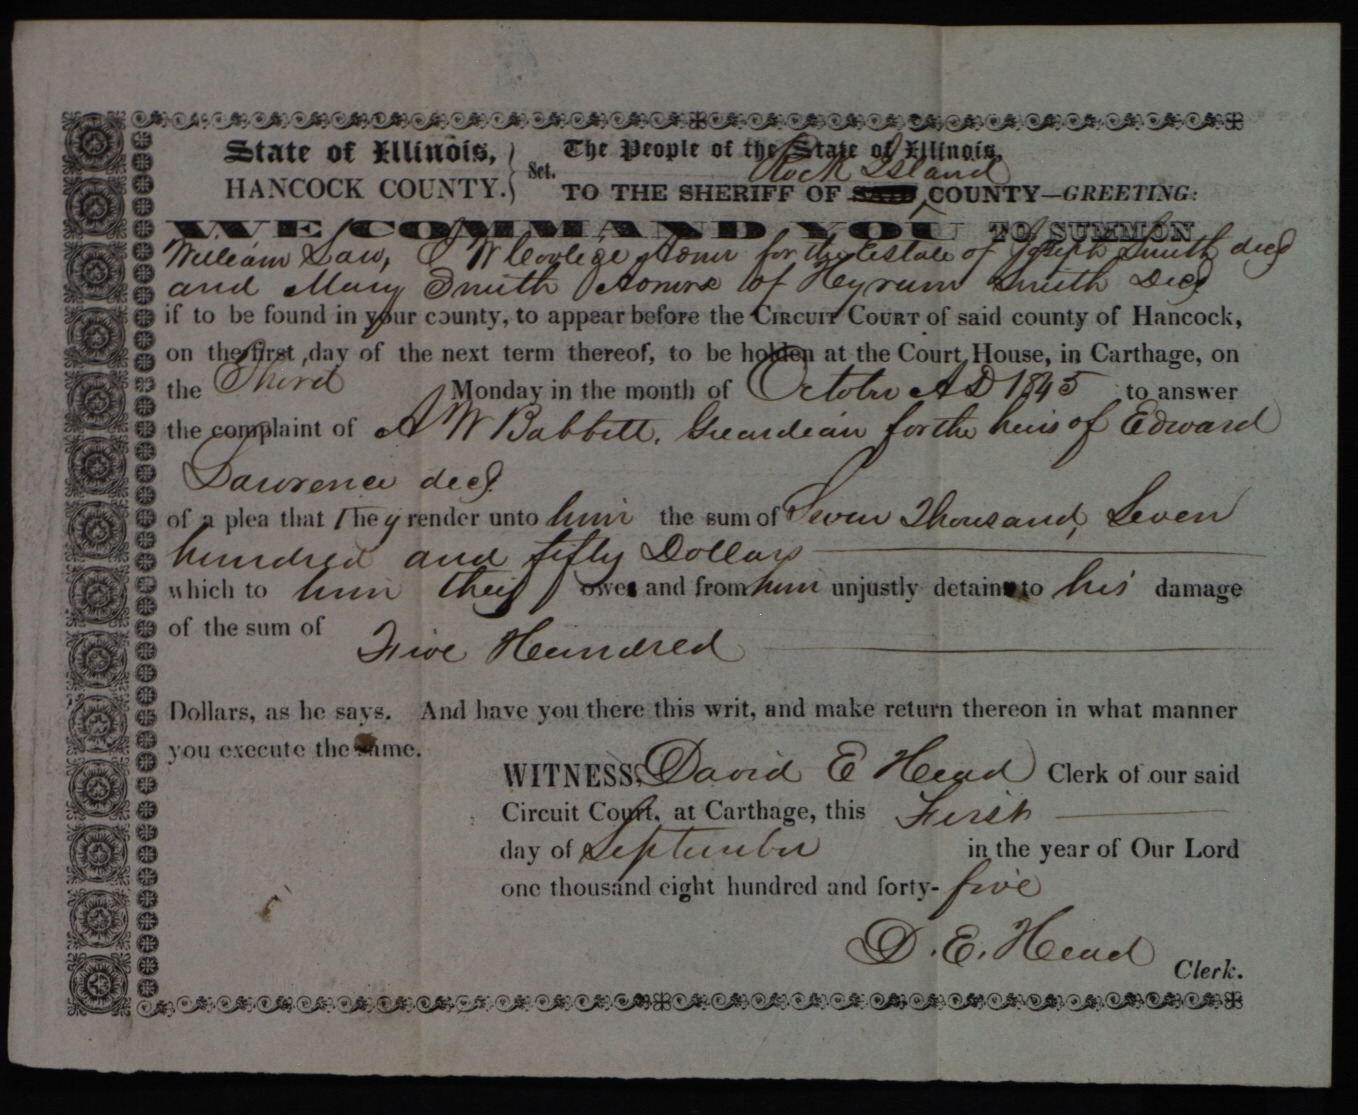 State of Illinois, } The People of the State of Illinois,
HANCOCK COUNTY. } Sct. Rock Island
TO THE SHERIFF OF SAID COUNTY—GREETING:
WE COMMAND YOU TO SUMMON
William Law, J W Coolige Admr for the Estate of Joseph Smith decd
and Mary Smith Admrx of Hyrum Smith Decd
if to be found in your county, to appear before the CIRCUIT COURT of said county of Hancock,
on the first day of the next term thereof, to be holden at the Court House, in Carthage, on
the Third Monday in the month of October A D 1845 to answer
the complaint of A W Babbitt, Guardian for the heirs of Edward
Lawrence decd
of a plea that They render unto him the sum of Seven Thousand, Seven
hundred and fifty Dollars
which to him they owe and from him unjustly detain to his damage
of the sum of
Five Hundred
Dollars, as he says. And have you there this writ, and make return thereon in what manner
you execute the same.
WITNESS, David E Head Clerk of our said
Circuit Court, at Carthage, this First
day of September in the year of Our Lord
one thousand eight hundred and forty-five
D. E. Head
Clerk.